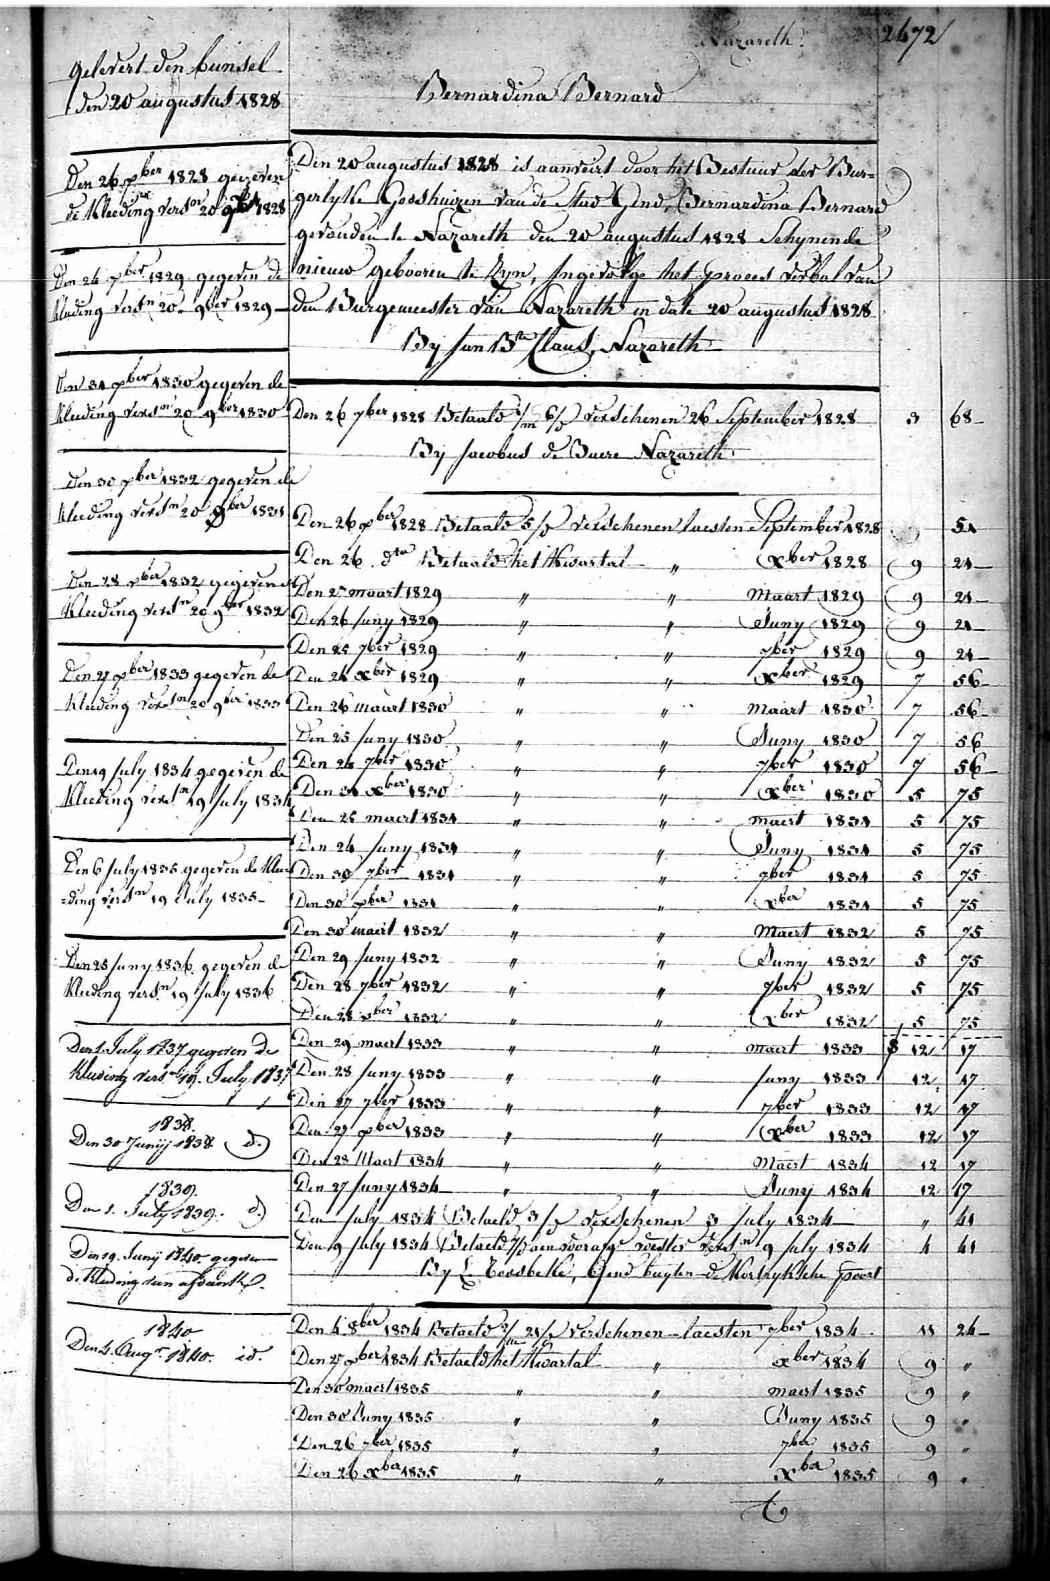 Nazareth. 2472
gelevert den bunsel
den 20 augustus 1828
Bernardina Bernard
Den 26 xber 1828 gegeven
de Kleeding versn 20 9ber 1828
Den 24 xber 1829 gegeven de
kleding versn 20 9ber 1829
Den 31 xber 1830 gegeven de
kleeding versn 20 9ber 1830
Den 30 xber 1832 gegeven de
kleeding versn 20 9ber 1831
Den 28 xber 1832 gegeven de
Kleeding versn 20 9ber 1832
Den 27 xber 1833 gegeven de
Kleeding versn 20 9ber 1833
Den 19 July 1834 gegeven de
Kleeding versn 19 July 1834
Den 6 July 1835 gegeven de Klee
=ding versn 19 July 1835
Den 28 Juny 1836 gegeven de
Kleeding versn 19 July 1836
Den 1 July 1837 gegeven de
Kleeding versn 19. July 1837
1838.
Den 30 Junij 1838 d.)
1839.
Den 1. July 1839. d)
Den 19. Junij 1840. gegeven
de kleding van
1840
Den 4. Augt 1840. id.
Den 20 augustus 1828 is aanveirt door het Bestuur der Bur=
gerlyke Godshuizen van de Stad Gend, Bernardina Bernard
gevonden te Nazareth den 20 augustus 1828 Schynende
nieuw gebooren te Zyn, Ingevolge het proces verbal van
den Burgemeester van Nazareth in date 20 augustus 1828
By Jan Bte Claus, Nazareth
Den 26 7ber 1828 Betaald 1/m 6/d verschenen 26 September 1828 3 68
By Jacobus de Buere Nazareth
Den 26 xber 1828 Betaald 5/d verschenen laesten September 1828 51
Den 26 dto Betaald het Kwartal " Xber 1828 9 21
Den 27 maart 1829 " " Maart 1829 9 21
Den 26 Juny 1829 " " Juny 1829 9 21
Den 25 7ber 1829 " " 7ber 1829 9 21
Den 24 Xber 1829 " " Xber 1829 7 56
Den 26 maart 1830 " " Maart 1830 7 56
Den 25 Juny 1830 " " Juny 1830 7 56
Den 24 7ber 1830 " " 7ber 1830 7 56
Den 31 Xber 1830 " " Xber 1830 5 75
Den 25 maert 1831 " " maert 1831 5 75
Den 24 Juny 1831 " " Juny 1831 5 75
Den 30 7ber 1831 " " 7ber 1831 5 75
Den 30 xber 1831 " " Xber 1831 5 75
Den 30 maert 1832 " " Maert 1832 5 75
Den 29 Juny 1832 " " Juny 1832 5 75
Den 28 7ber 1832 " " 7ber 1832 5 75
Den 28 xber 1832 " " Xber 1832 5 75
Den 29 maert 1833 " " maert 1833 12 17
Den 28 Juny 1833 " " Juny 1833 12 17
Den 27 7ber 1833 " " 7ber 1833 12 17
Den 27 xber 1833 " " Xber 1833 12 17
Den 28 Maert 1834 " " Maert 1834 12 17
Den 27 Juny 1834 " " Juny 1834 12 17
Den July 1834 Betaeld 3/d verschenen 3 July 1834 " 41
Den 9 July 1834 Betaeld aen voorafge voester versn 9 July 1834 4 41
By Gend buyten de Kortrykschen poort
Den 4 8ber 1834 Betaeld 2/m 21/d verschenen laesten 7ber 1834 11 24
Den 27 xber 1834 Betaeld het Kwartal " Xber 1834 9 "
Den 30 maert 1835 " " maert 1835 9 "
Den 30 Juny 1835 " " Juny 1835 9 "
Den 26 7ber 1835 " " 7ber 1835 9 "
Den 26 xber 1835 " " Xber 1835 9 "